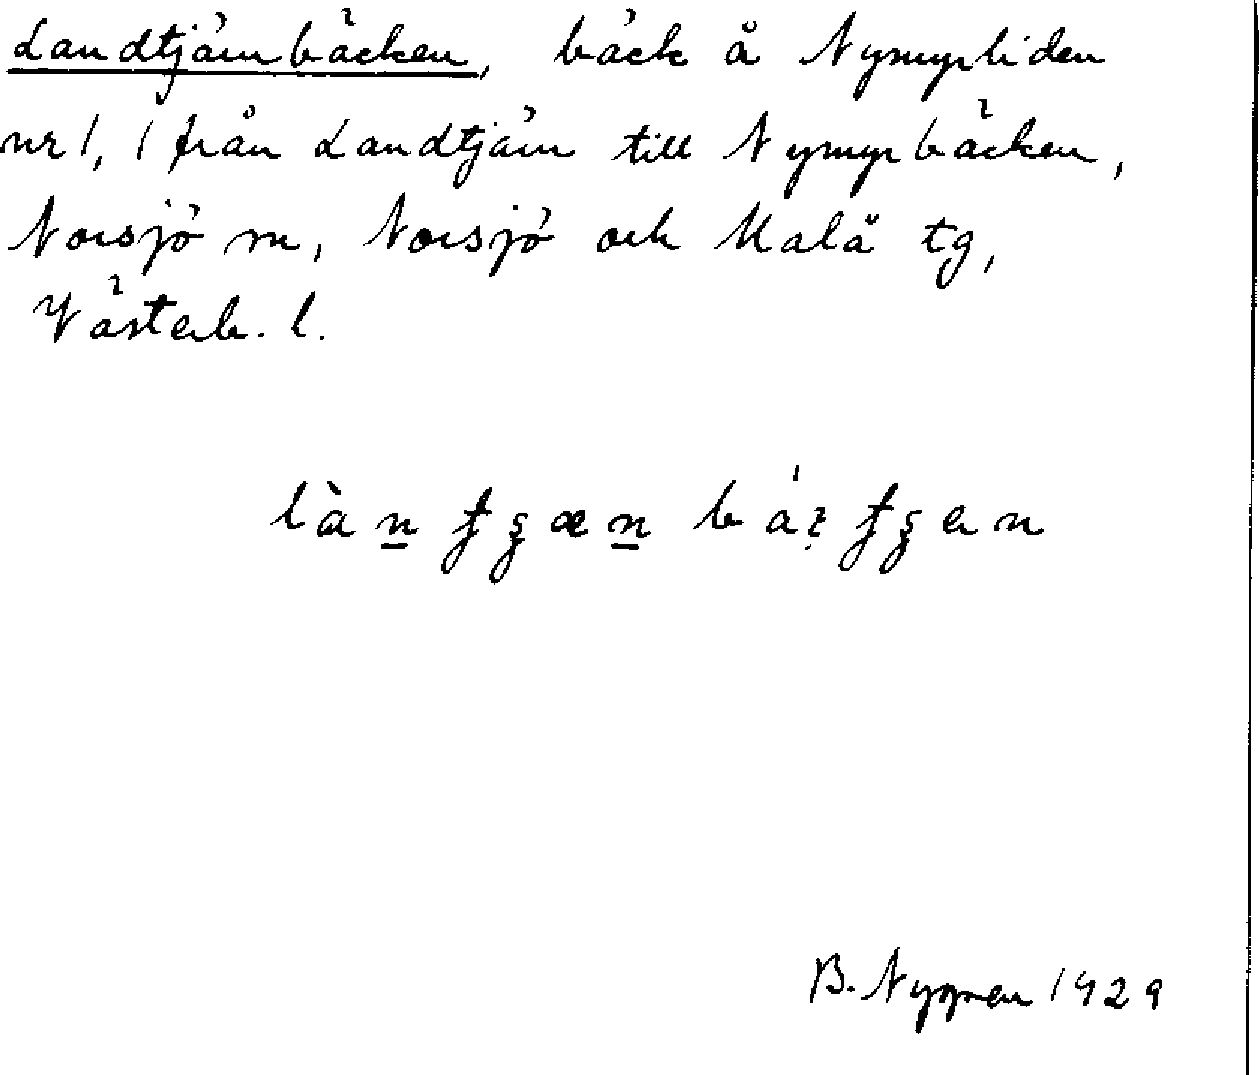 Landtjärnbäcken, bäck å Nymyrliden
nr 1, i från Landtjärn till Nymyrbäcken,
Norsjö sn, Norsjö och Malå tg,
Västerb. l.
B. Nygren 1929